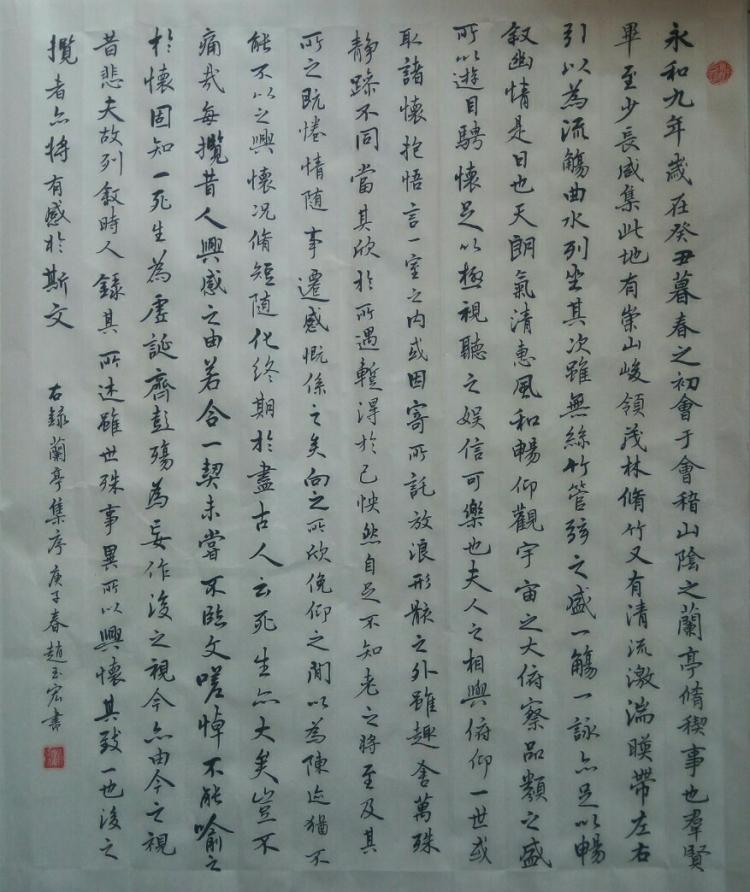 永和九年歲在癸丑暮春之初會于會稽山陰之蘭亭脩稧事也羣賢
畢至少長咸集此地有崇山峻領茂林脩竹又有清流激湍暎帶左右
引以為流觴曲水列坐其次雖無絲竹管弦之盛一觴一詠亦足以暢
叙幽情是日也天朗氣清惠風和暢仰觀宇宙之大俯察品類之盛
所以遊目騁懷足以極視聽之娛信可樂也夫人之相與俯仰一世或
取諸懷抱悟言一室之内或因寄所託放浪形骸之外雖趣舍萬殊
静躁不同當其欣於所遇蹔得於己怏然自足不知老之將至及其
所之既惓情隨事遷感慨係之矣向之所欣俛仰之閒以為陳迹猶不
能不以之興懷況脩短隨化終期於盡古人云死生亦大矣豈不
痛哉每攬昔人興感之由若合一契未嘗不臨文嗟悼不能喻之
於懷固知一死生為虛誕齊彭殤為妄作後之視今亦由今之視
昔悲夫故列叙時人錄其所述雖世殊事異所以興懷其致一也後之
攬者亦將有感於斯文
右録蘭亭集序庚子春趙玉宏書